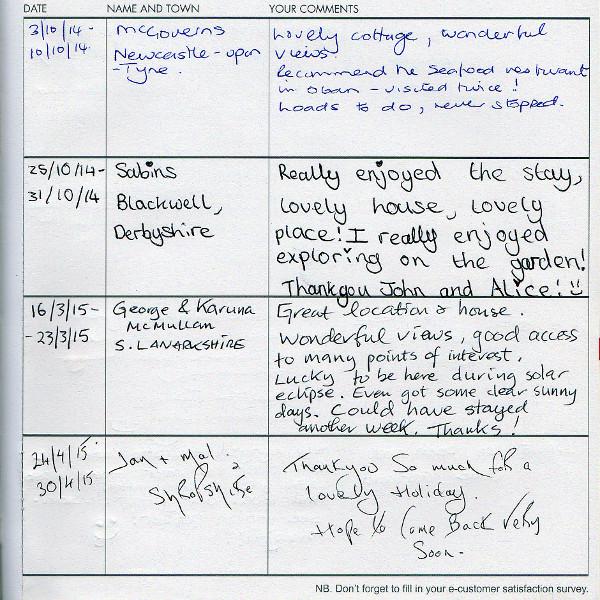 DATE NAME AND TOWN YOUR COMMENTS
3/10/14- McGoverns Lovely cottage, wonderful
10/10/14 Newcastle-upon views.
-Tyne. Recommend the seafood resturant
in Oban - visited twice!
Loads to do, never stopped.
25/10/14- Sabins Really enjoyed the stay,
31/10/14 Blackwell, lovely house, lovely
Derbyshire place! I really enjoyed
exploring on the garden!
Thankyou John and Alice!
16/3/15- George & Karuna Great location & house.
-23/3/15 McMULLAN Wonderful views, good access
S. LANARKSHIRE to many points of interest.
Lucky to be here during solar
eclipse. Even got some clear sunny
days. Could have stayed
another week. Thanks!
24/4/15 Jan + Mal. Thankyou So much for a
30/4/15 Shropshire lovely Holiday.
Hope to Come Back Very
Soon.
NB. Don't forget to fill in your e-customer satisfaction survey.